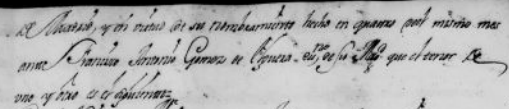 de Madrid, y en virtud de su nombramiento hecho en quatro del mismo mes
ante Francisco Antonio Gomez de es.no de su Mag. que el tenor de
uno y otro es el siguiente